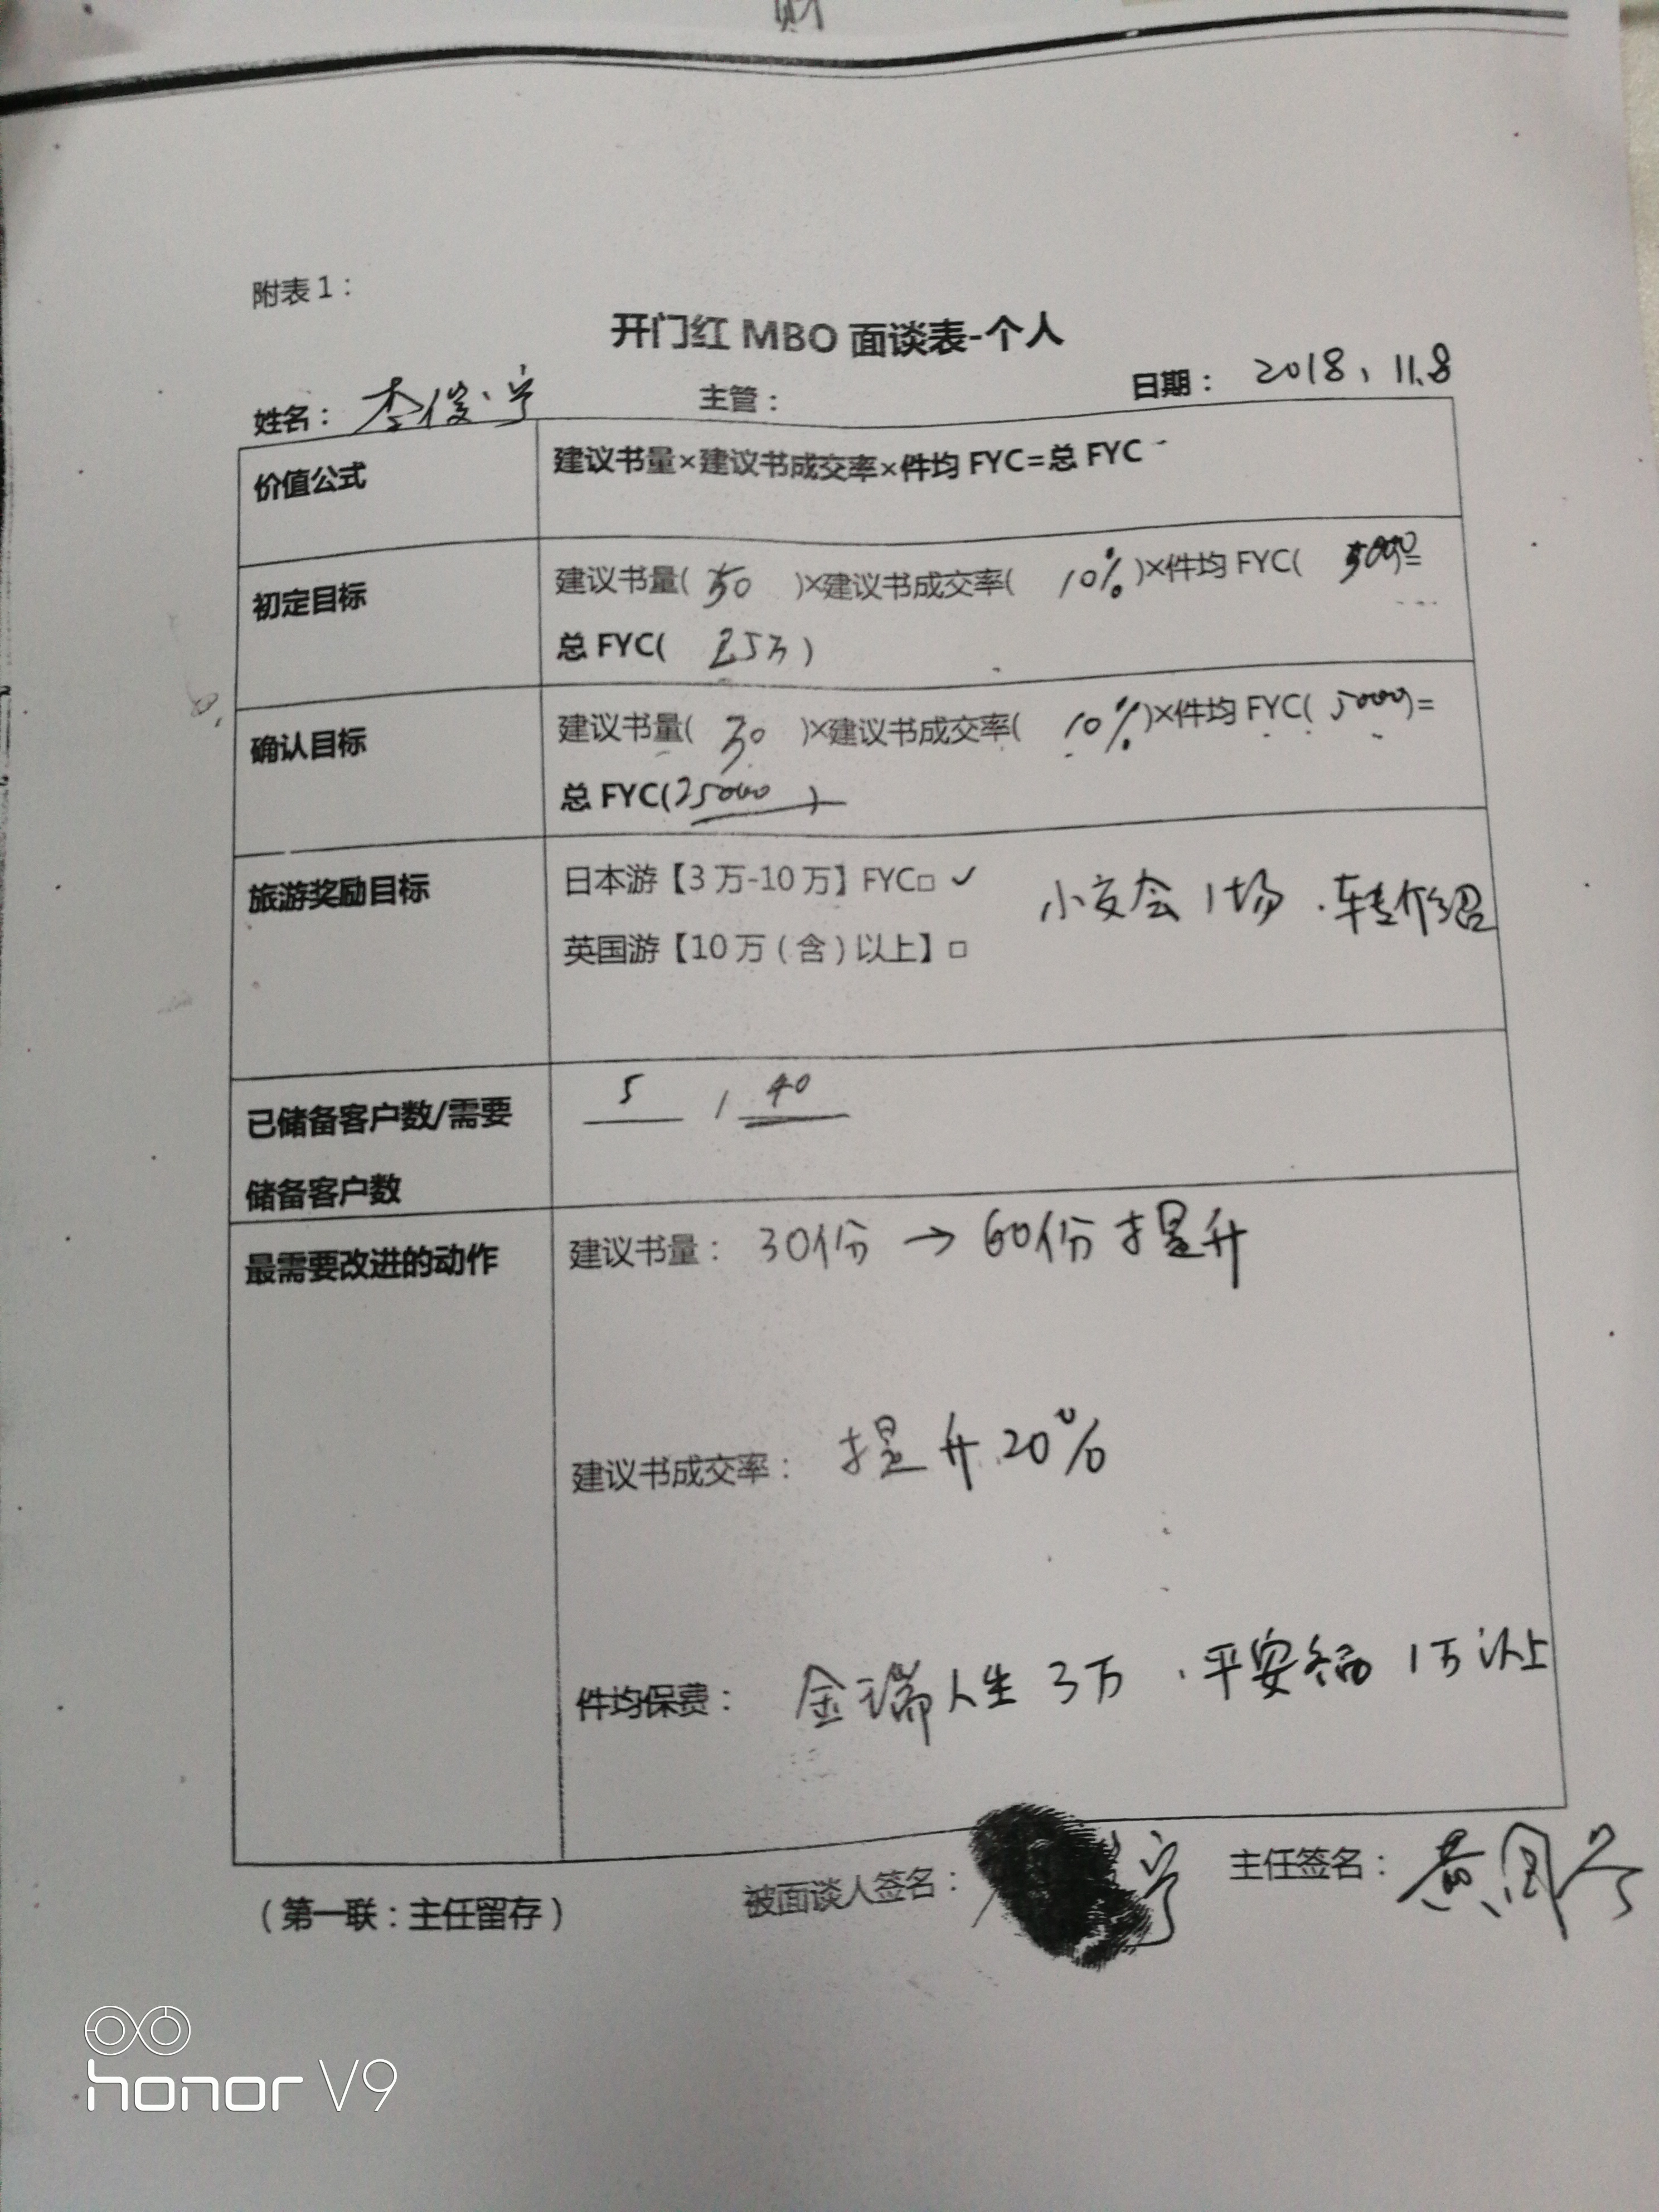 财
附表1：
开门红 MBO 面谈表-个人
姓名： 李俊宁 主管： 日期： 2018、11.8
价值公式 建议书量×建议书成交率×件均 FYC=总 FYC
初定目标 建议书量( 50 )×建议书成交率( 10% )×件均 FYC( 5000)=
总 FYC( 2.5万 )
确认目标 建议书量( )×建议书成交率( 10% )×件均 FYC( 5000)=
总 FYC(25000 )
旅游奖励目标 日本游【3 万-10 万】FYC□ ✓ 小交会 1场 . 转介绍
英国游【10 万（含）以上】□
已储备客户数/需要 5 / 40
储备客户数
最需要改进的动作 建议书量： 30份 → 60份 提升
建议书成交率： 提升 20%
件均保费： 金瑞人生 3万 、平安福 1万以上
被面谈人签名： 宁 主任签名： 黄
（第一联：主任留存）
honor V9